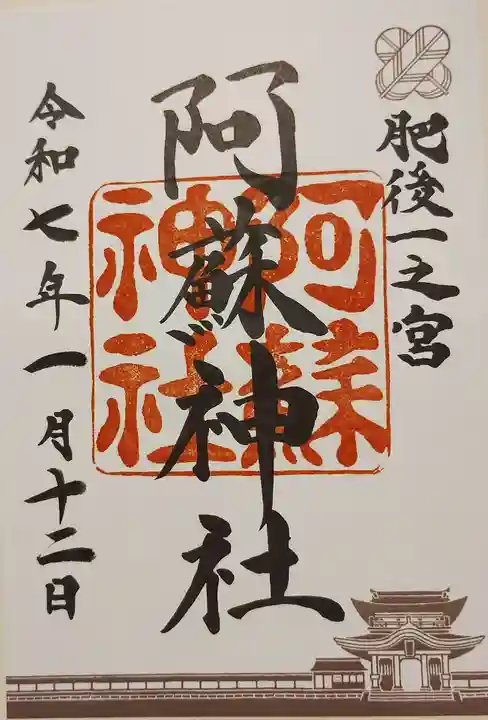 肥後一之宮
阿蘇神社
阿蘇
神社
令和七年一月十二日